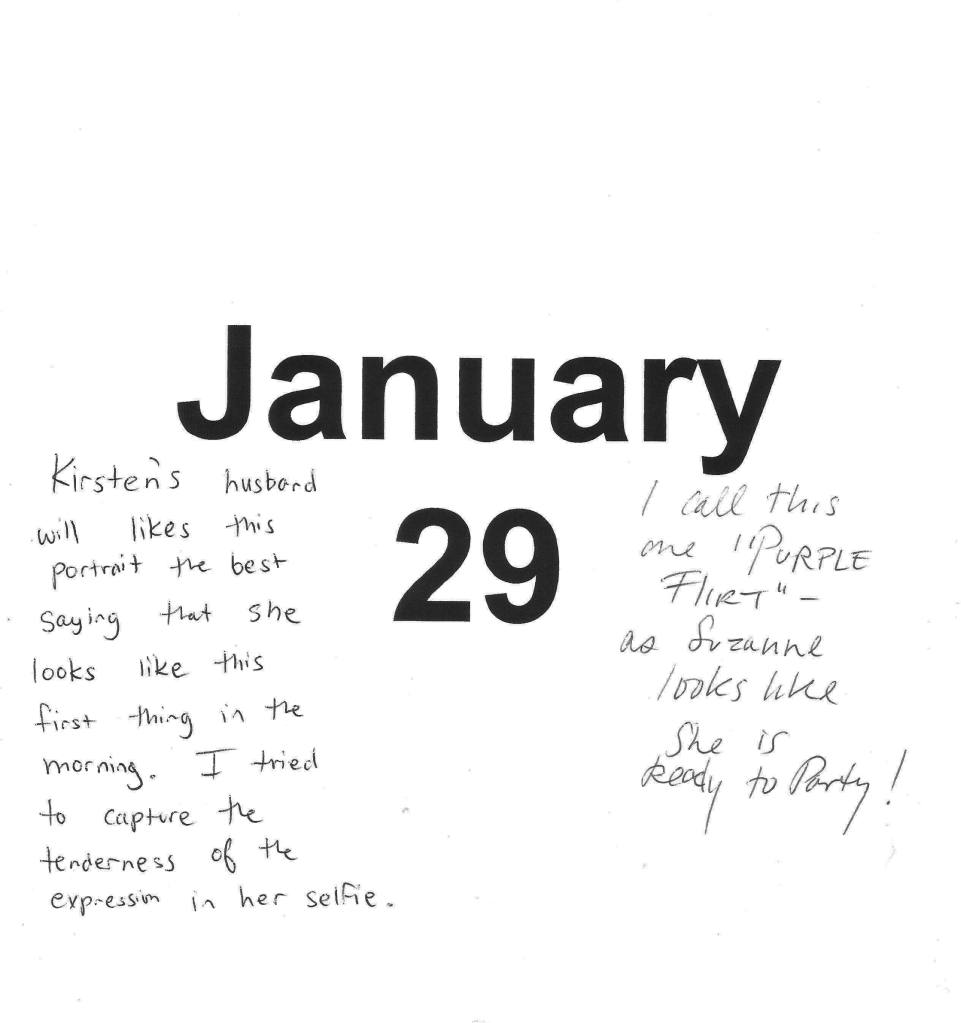 January
29
Kirsten's husband
will likes this
portrait the best
saying that she
looks like this
first thing in the
morning. I tried
to capture the
tenderness of the
expression in her selfie.
I call this
one "PURPLE
FLIRT" –
as Suzanne
looks like
She is
Ready to Party!